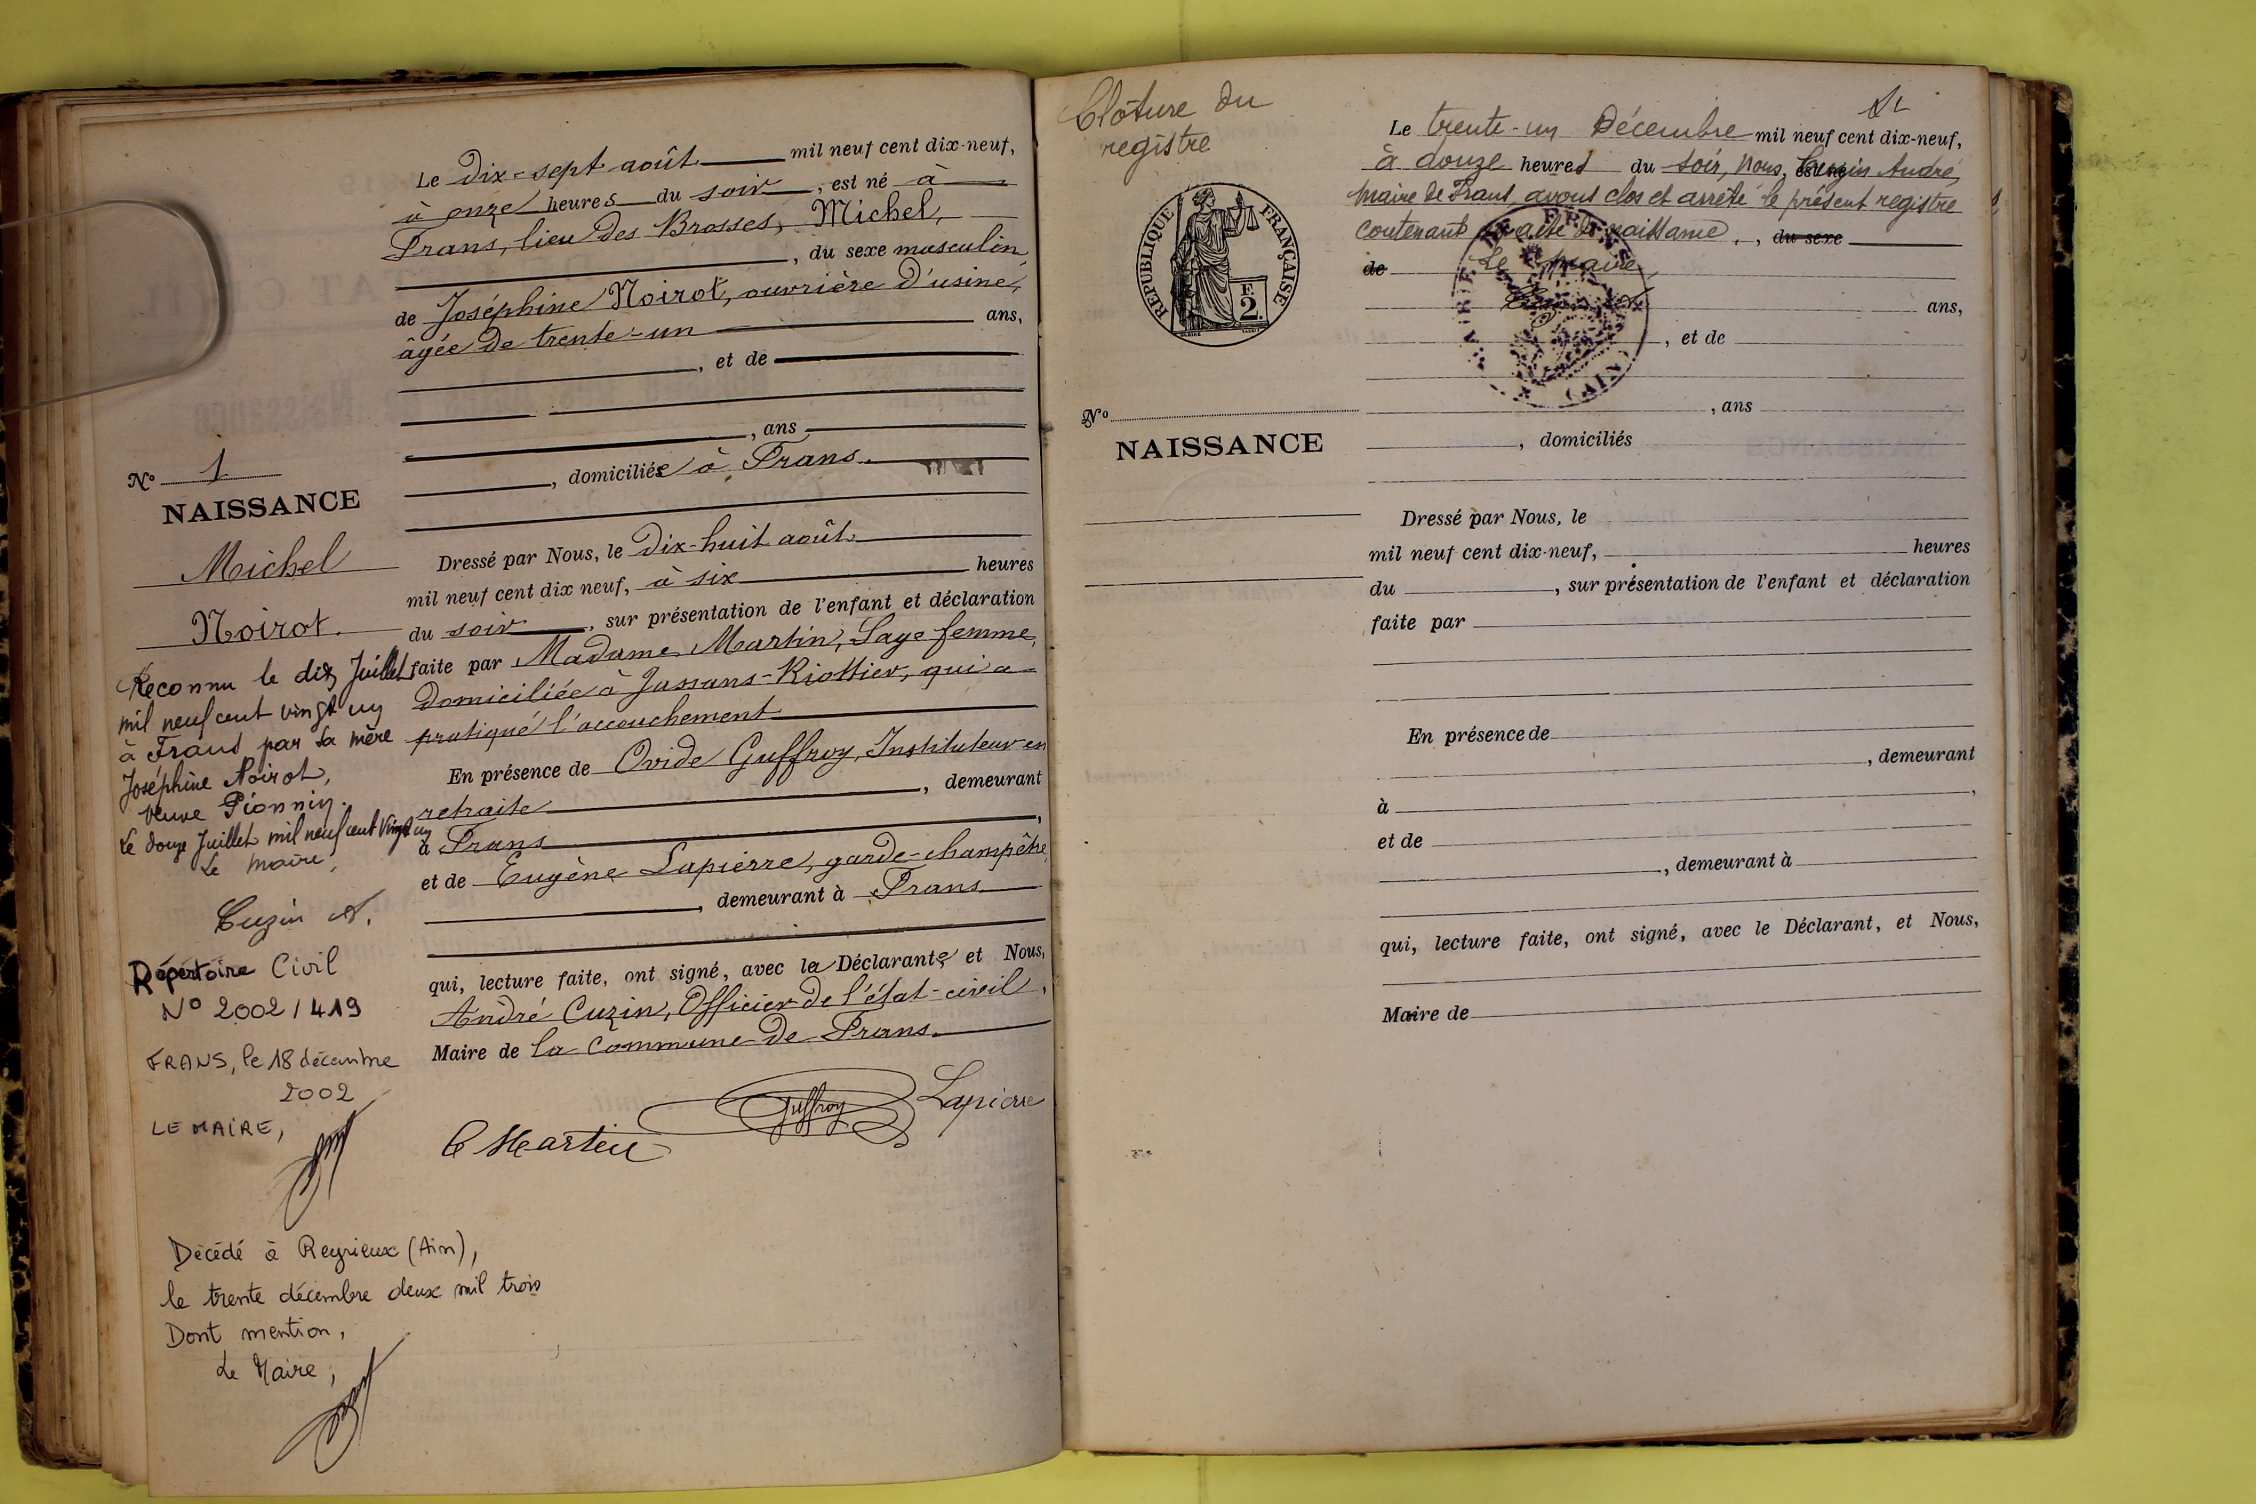 Le dix-sept août mil neuf cent dix-neuf,
à onze heures du soir, est né à
Frans, lieu des Brosses, Michel,
, du sexe masculin,
de Joséphine Noirot, ouvrière d'usine,
âgée de trente-un ans,
, et de
, ans
, domiciliée à Frans.
Dressé par Nous, le dix-huit août
mil neuf cent dix neuf, à six heures
du soir, sur présentation de l'enfant et déclaration
faite par Madame Martin, Sage femme,
domiciliée à Jassans-Riottier, qui a
pratiqué l'accouchement
En présence de Ovide Guffroy, Instituteur en
retraite, demeurant
à Frans,
et de Eugène Lapierre, garde-champêtre,
, demeurant à Frans
qui, lecture faite, ont signé, avec la Déclarante et Nous,
André Cuzin, Officier de l'état-civil,
Maire de la Commune de Frans.
Guffroy Lapierre
C Martin
No 1
NAISSANCE
Michel
Noirot.
Reconnu le dix Juillet
mil neuf cent vingt un
à Frans par sa mère
Joséphine Noirot,
veuve Pionnin.
Le douze Juillet mil neuf cent vingt un
Le Maire,
Cuzin A.
Répertoire Civil
No 2002/419
FRANS, le 18 décembre
2002
LE MAIRE,
Décédé à Reyrieux (Ain),
le trente décembre deux mil trois
Dont mention,
Le Maire,
Clôture du
registre
RÉPUBLIQUE FRANÇAISE
F.
2
No
NAISSANCE
Le trente-un Décembre mil neuf cent dix-neuf,
à douze heures du soir, Nous, Cuzin André,
Maire de Frans, avons clos et arrêté le présent registre
contenant acte de naissance, , du sexe
de Le Maire,
ans,
MAIRIE DE FRANS
(AIN)
, et de
, ans
, domiciliés
Dressé par Nous, le
mil neuf cent dix-neuf, heures
du , sur présentation de l'enfant et déclaration
faite par
En présence de
, demeurant
à ,
et de
, demeurant à
qui, lecture faite, ont signé, avec le Déclarant, et Nous,
Maire de